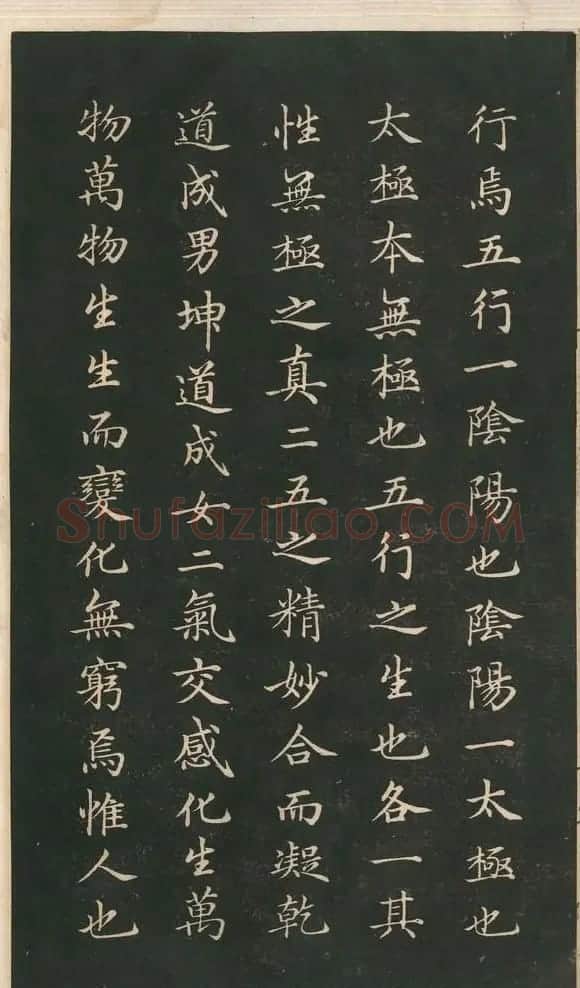 行焉五行一陰陽也陰陽一太極也
太極本無極也五行之生也各一其
性無極之真二五之精妙合而凝乾
道成男坤道成女二氣交感化生萬
物萬物生生而變化無窮焉惟人也
Shufaziliao.COM